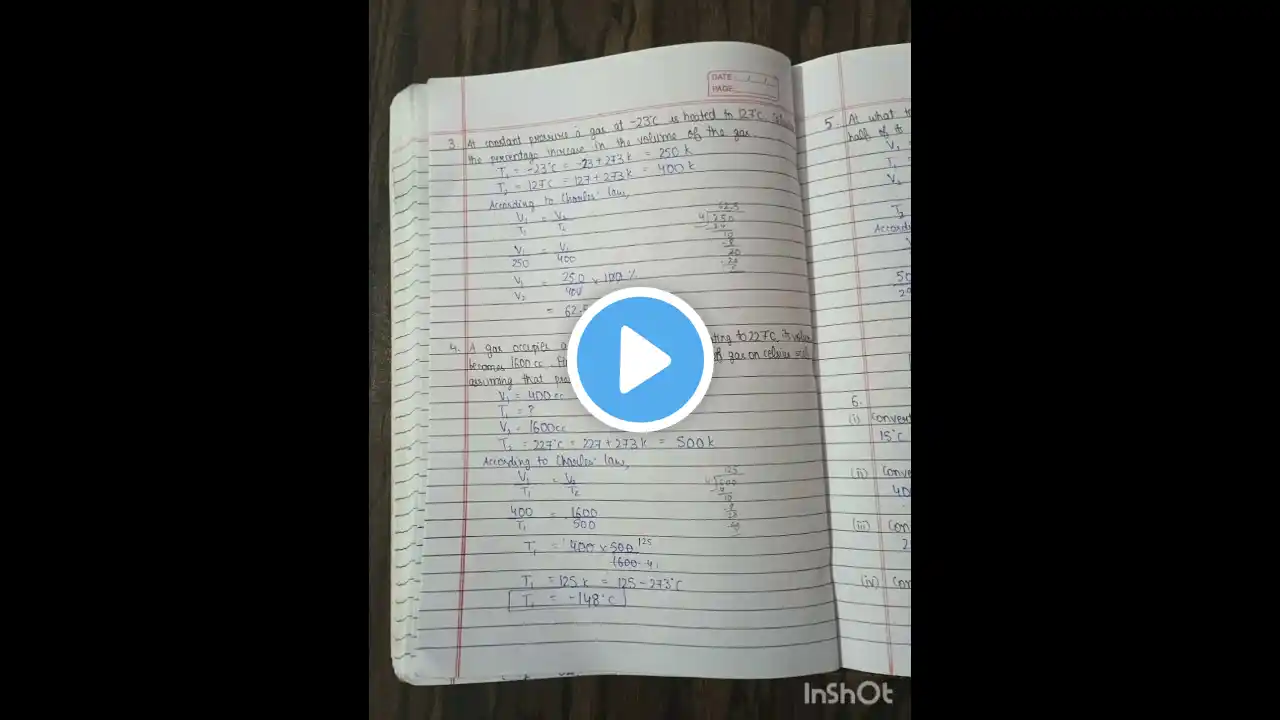 DATE : / /
PAGE
3 At constant pressure a gas at -23°C is heated to 127°C.
the percentage increase in the volume of the gas.
T₁ = -23°C = -23+273 k = 250 k
T₂ = 127°C = 127+273 k = 400 k
According to Charles' law,
V₁ = V₂
T₁ T₂
V₁ = V₁
250 400
V₁ = 250 × 100 %
V₂ 400
= 62.5
62.5
4 250
24
10
-8
20
-20
4. A gas occupies ting to 227°C. Its volum
becomes 1600 cc. of gas on celsius
assuming that pre
V₁ = 400 cc
T₁ = ?
V₂ = 1600cc
T₂ = 227°C = 227 + 273 k = 500 k
According to Charles' law,
V₁ = V₂
T₁ T₂
400 = 1600
T₁ 500
T₁ = 400 × 500 125
1600 4
T₁ = 125 k = 125 - 273°C
T₁ = -148°C
125
4 500
4
10
-8
20
5 At what t
half of it
V₁ =
T₁ =
V₂
T₂
Accord
50
29
6.
(i) Convert
15°C
(ii) Conve
40
(iii) Con
2
(iv) Con
InShOt